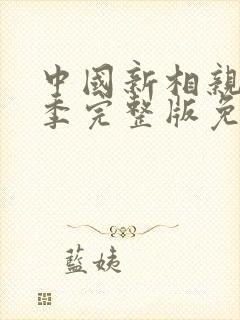 中國新相親
季完整版免
藍姨